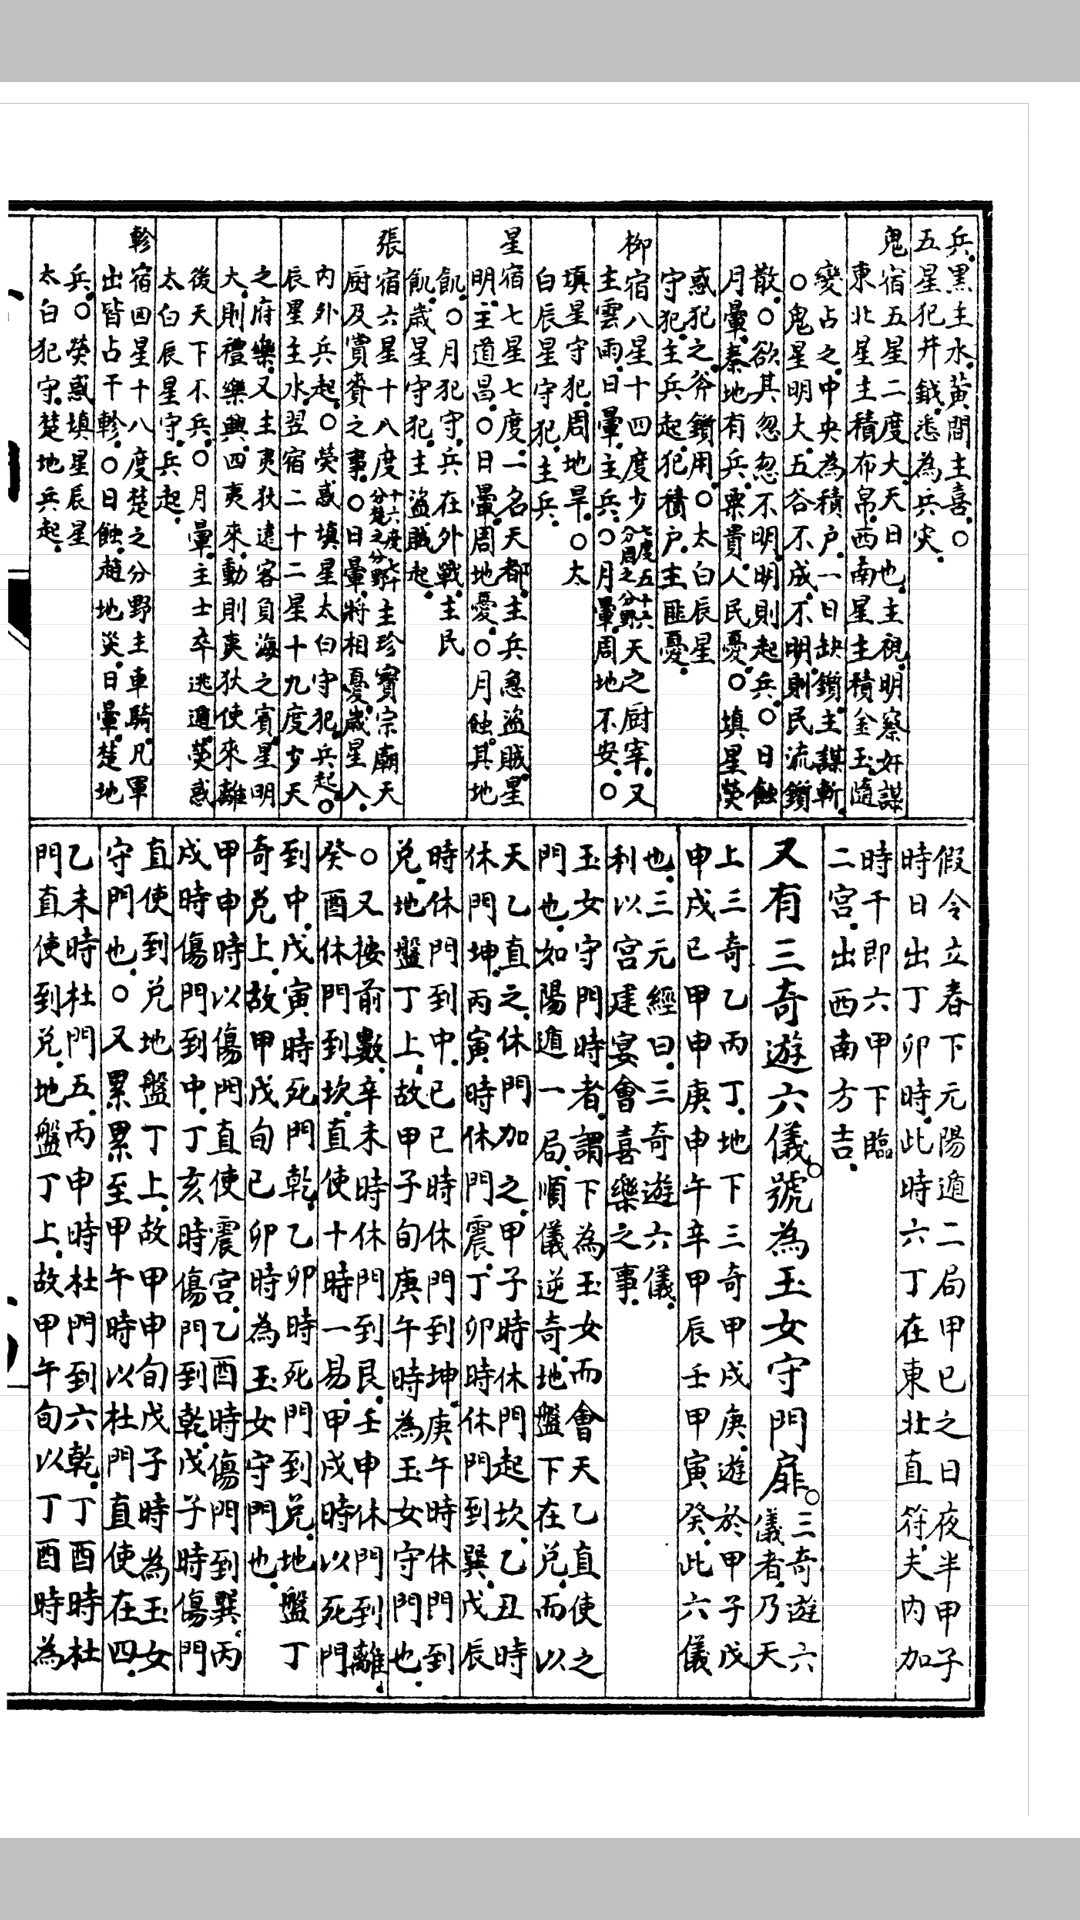 兵。黑主水。黃間主喜。〇
五星犯井鉞。悉為兵灾。
鬼宿五星二度大。天日也。主視。明察奸謀
東北星主積布帛。西南星主積金玉。隨
變占之。中央為積尸。一日缺鑕。主謀斬。
〇鬼星明大。五谷不成。不明。則民流。鑕
散。〇欲其忽忽不明。明則起兵。〇日蝕
月暈。秦地有兵。粟貴。人民憂。〇填星熒
惑犯之。斧鑕用。〇太白辰星
守犯。主兵起。犯積尸。主匪憂。
柳宿八星十四度少 七度五十六分周之分野 天之厨宰。又
主雲雨。日暈。主兵。〇月暈。周地不安。〇
填星守犯。周地旱。〇太
白辰星守犯。主兵。
星宿七星七度。一名天都。主兵急盜賊。星
明。主道昌。〇日暈。周地憂。〇月蝕。其地
飢。〇月犯守。兵在外戰。主民
飢。歲星守犯。主盜賊起。
張宿六星十八度 十六度七十分楚之分野 主珍寶宗廟天
厨及賞賚之事。〇日暈。將相憂。歲星入。
內外兵起。〇熒惑填星太白守犯。兵起。〇
辰星主水。翌宿二十二星十九度少。天
之府樂。又主夷狄遠客負海之賓。星明
大。則禮樂興。四夷來。動則夷狄使來。離
後天下不兵。〇月暈。主士卒逃遁。熒惑
太白辰星守。兵起。
軫宿四星十八度楚之分野主車騎。凡軍
出皆占于軫。〇日蝕。趙地災。日暈。楚地
兵。〇熒惑填星辰星
太白犯守。楚地兵起。
假令立春下元陽遁二局甲己之日夜半甲子
時日出丁卯時。此時六丁在東北直符。夫內加
時干即六甲下臨
二宮。出西南方吉。
又有三奇遊六儀。號為玉女守門扉。三奇遊六
儀者。乃天
上三奇乙丙丁。地下三奇甲戌庚。遊於甲子戊
申戌己甲申庚申午辛甲辰壬甲寅癸。此六儀
也。三元經曰。三奇遊六儀。
利以宮建宴會喜樂之事。
玉女守門時者。謂下為玉女而會天乙直使之
門也。如陽遁一局。順儀逆奇。地盤下在兌。而以
天乙直之。休門加之。甲子時休門起坎。乙丑時
休門坤。丙寅時休門震。丁卯時休門到巽。戊辰
時休門到中。己巳時休門到坤。庚午時休門到
兌。地盤丁上。故甲子旬庚午時為玉女守門也。
〇又按前數。辛未時休門到艮。壬申休門到離。
癸酉休門到坎。直使十時一易。甲戌時以死門
到中。戊寅時死門乾。乙卯時死門到兌。地盤丁
奇兌上。故甲戊旬己卯時為玉女守門也。
甲申時以傷門直使震宮。乙酉時傷門到巽。丙
戌時傷門到中。丁亥時傷門到乾。戊子時傷門
直使到兌地盤丁上。故甲申旬戊子時為玉女
守門也。〇又累累至甲午時以杜門直使在四。
乙未時杜門五。丙申時杜門到六乾。丁酉時杜
門直使到兌。地盤丁上。故甲午旬以丁酉時為